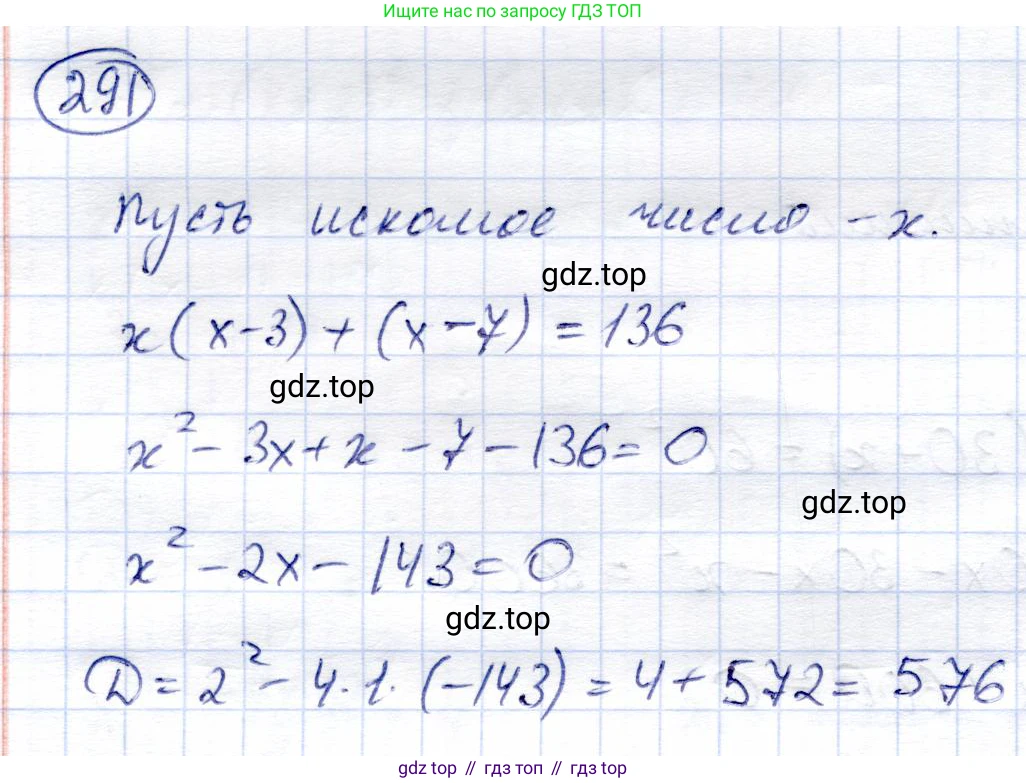 Ищите нас по запросу ГДЗ ТОП
291
Пусть искомое число - x.
gdz.top
x(x-3) + (x-7) = 136
gdz.top
x² - 3x + x - 7 - 136 = 0
gdz.top
x² - 2x - 143 = 0
gdz.top
D = 2² - 4·1·(-143) = 4 + 572 = 576
gdz.top // гдз топ // гдз top